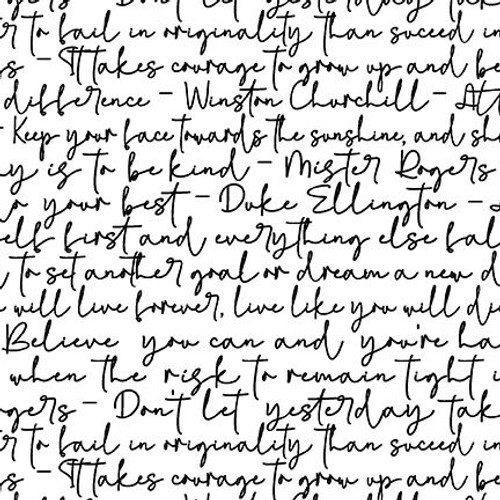 gers - Don't let yesterday tak
r to fail in originality than suceed in
s - It takes courage to grow up and be
difference - Winston Churchill - Att
Keep your face towards the sunshine, and sh
y is to be kind - Mister Rogers
o your best - Duke Ellington -
elf first and everything else fal
to set another goal or dream a new d
will live forever, live like you will di
Believe you can and you're ha
when the risk to remain tight i
gers - Don't let yesterday tak
r to fail in originality than suceed in
s - It takes courage to grow up and be